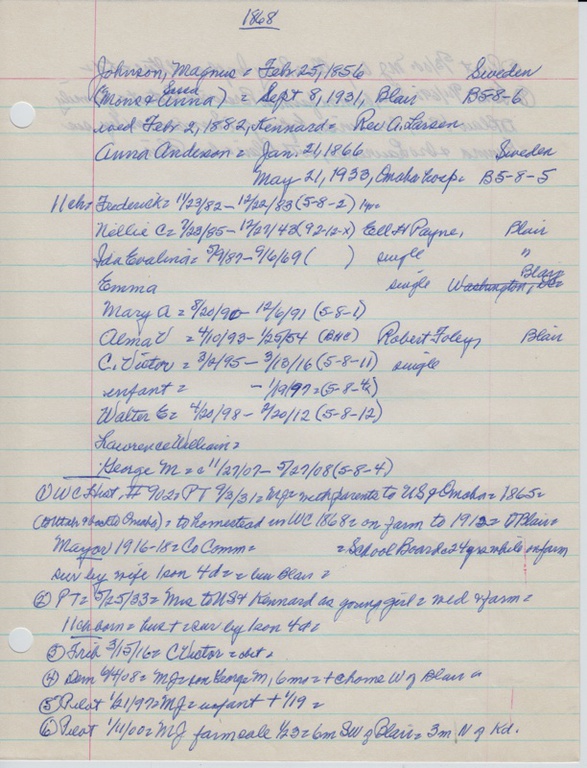 1868
Johnson, Magnus = Feb 25, 1856 Sweden
(Mons & Anna) = Sept 8, 1931, Blair B5-8-6
wed Feb 2, 1882, Kennard = Rev A. Larson
Anna Anderson = Jan. 21, 1866 Sweden
May 21, 1933, Omaha hosp = B5-8-5
11 ch = Frederick = 11/23/82 - 12/22/83 (5-8-2) 1 yr
Nellie C = 9/23/85 - 12/27/43 (92-12-x) Ell H Payne, Blair
Ida Evalina = 5/9/87 - 9/6/69 ( ) single "
Emma single Washington, DC Blair
Mary A = 8/20/90 - 12/6/91 (5-8-1)
Alma V = 4/10/93 - 1/25/54 (BHC) Robert Foley, Blair
C. Victor = 3/2/95 - 3/13/16 (5-8-11) single
infant = - 1/19/97 = (5-8-4½)
Walter E = 4/20/98 - 2/20/12 (5-8-12)
Lawrence William =
George M = c 11/27/07 - 5/27/08 (5-8-4)
① WC Hist. # 902 = PT 9/3/31 = MJ = with parents to US & Omaha = 1865 =
(to Utah & back to Omaha) = to homestead in WC 1868 = on farm to 1912 = Blair =
Mayor 1916-18 = Co Comm = = School Board = 24 yrs while on farm
sur by wife 1 son 4 d = = bur Blair =
② PT = 5/25/33 = Mrs to US & Kennard as young girl = wed & farm =
11 ch born = bur = sur by 1 son 4 d =
③ Trib 3/15/16 = C Victor = obit =
④ Dem 6/4/08 = MJ = son George M, 6 mo = + home W of Blair =
⑤ Pilot 1/21/97 = MJ = infant + 1/19 =
⑥ Pilot 1/11/00 = MJ farm sale 1/23 = 6m SW of Blair = 3m N of Kd.